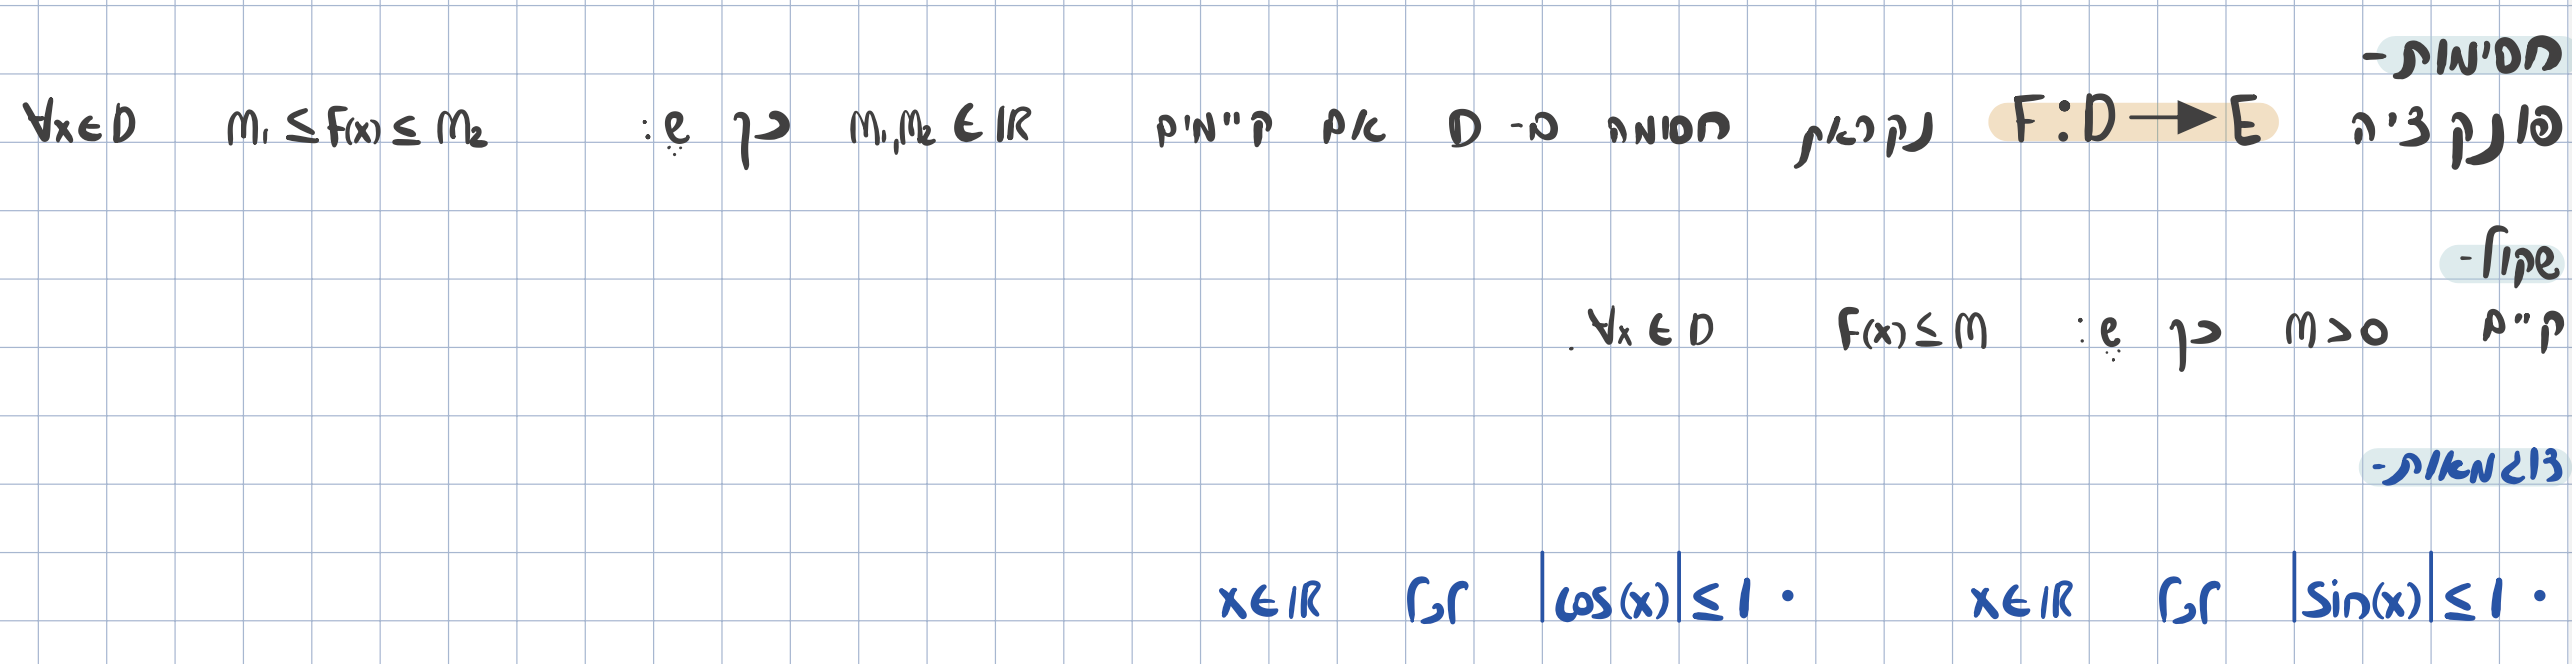 חסימות-
פונקציה F:D→E נקראת חסומה ב-D אם קיימים m₁,m₂∈ℝ כך ש: m₁≤F(x)≤m₂ ∀x∈D
שקול-
קיים M>0 כך ש: F(x)≤M ∀x∈D.
דוגמאות-
• |sin(x)|≤1 לכל x∈ℝ • |cos(x)|≤1 לכל x∈ℝ